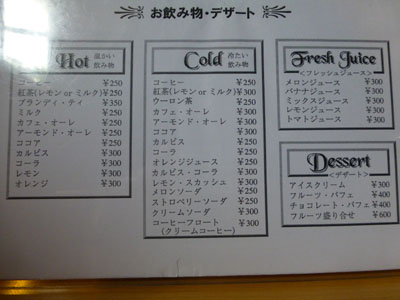 お飲み物・デザート
Hot 温かい飲み物
コーヒー ¥250
紅茶(レモン or ミルク) ¥250
ブランディ・ティ ¥350
ミルク ¥250
カフェ・オーレ ¥300
アーモンド・オーレ ¥300
ココア ¥300
カルピス ¥300
コーラ ¥300
レモン ¥300
オレンジ ¥300
Cold 冷たい飲み物
コーヒー ¥250
紅茶(レモン or ミルク) ¥250
ウーロン茶 ¥250
カフェ・オーレ ¥300
アーモンド・オーレ ¥300
ココア ¥300
カルピス ¥250
コーラ ¥250
オレンジジュース ¥250
カルピス・コーラ ¥300
レモン・スカッシュ ¥300
メロンソーダ ¥250
ストロベリーソーダ ¥250
クリームソーダ ¥300
コーヒーフロート ¥300
(クリームコーヒー)
Fresh Juice
<フレッシュジュース>
メロンジュース ¥300
バナナジュース ¥300
ミックスジュース ¥300
レモンジュース ¥300
トマトジュース ¥300
Dessert
<デザート>
アイスクリーム ¥300
フルーツ・パフェ ¥400
チョコレート・パフェ ¥400
フルーツ盛り合せ ¥600